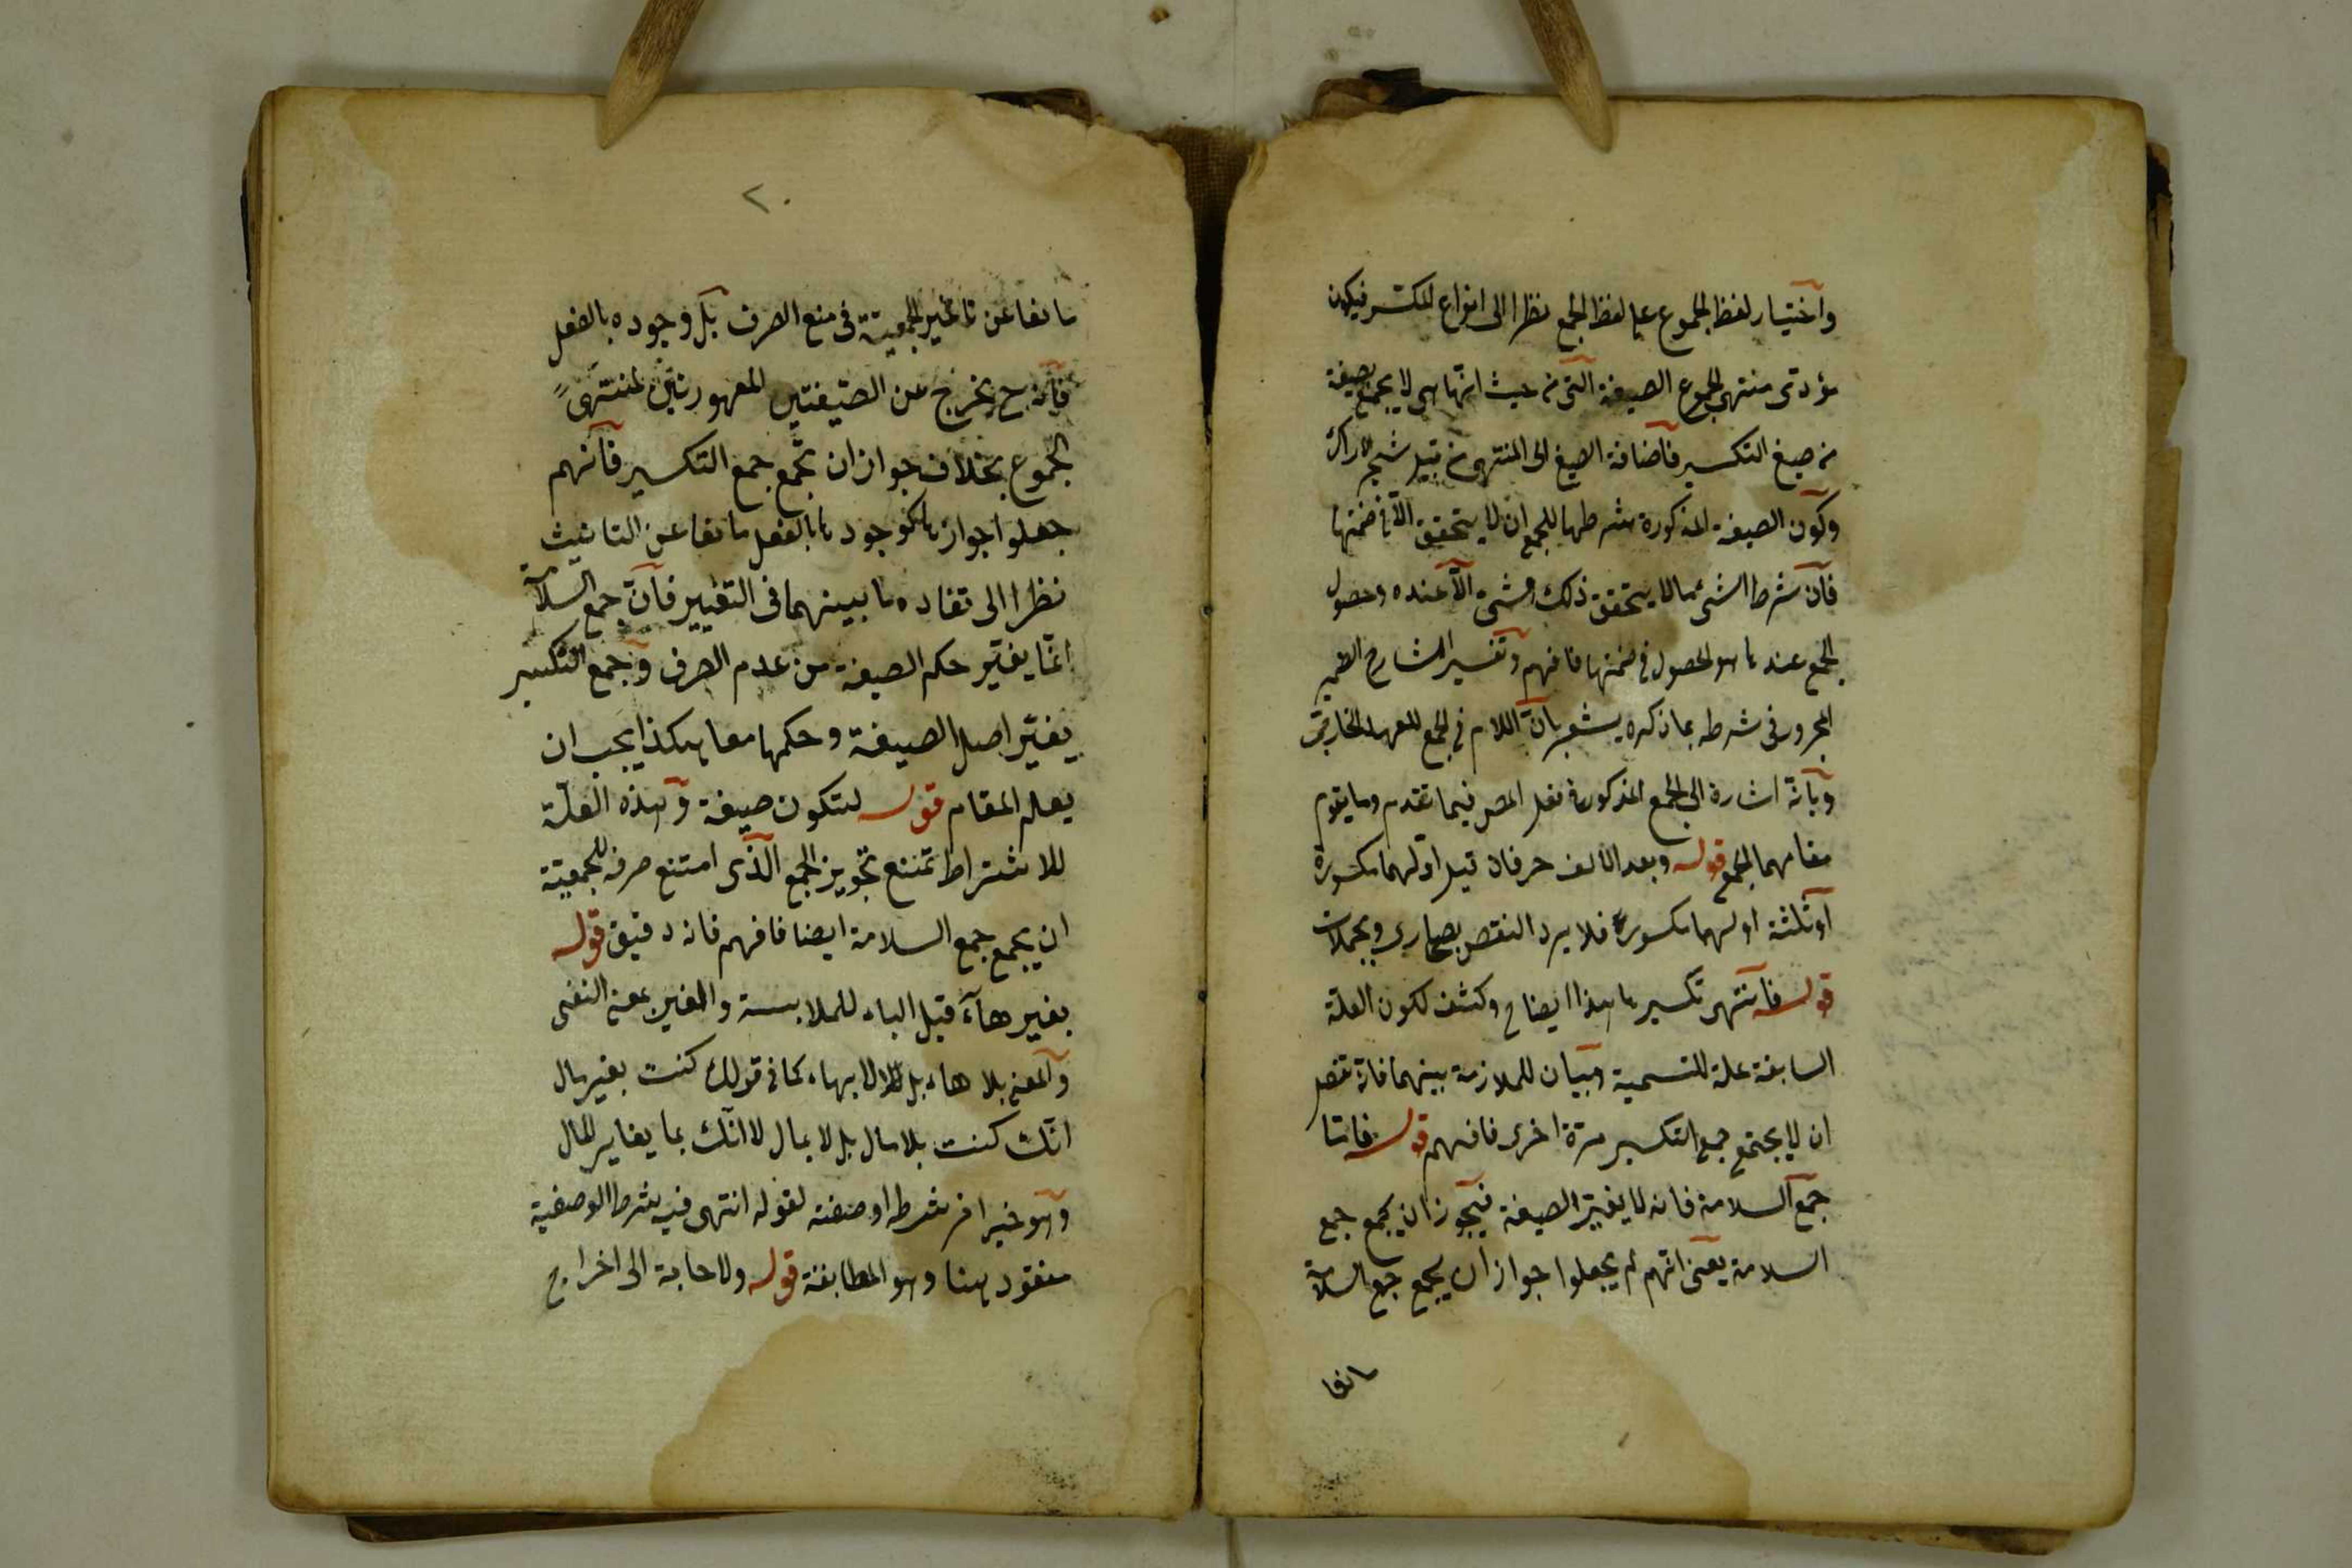 واختيار لفظ الجموع على لفظ الجمع نظرا الى انواع المكسر فيكون
مؤدى منتهى الجموع الصيغة التى من حيث انها هى لا يجمع بصيغة
من صيغ التكسير فاضافة الصيغ الى المنتهى من قبيل شجر الاراك
وكون الصيغة المذكورة شرطها للجمع ان لا يتحقق الا فى ضمنها
فان شرط الشئ ما لا يتحقق ذلك الشئ الا عنده وحصول
الجمع عند ما هو الحصول فى ضمنها فافهم وتفسير الشارح الضمير
المجرور فى شرطه بما ذكره يشعر بان اللام فى الجمع للعهد الخارجى
وبانه اشارة الى الجمع المذكور فى نقل المص فيما تقدم وما يقوم
مقامهما الجمع قوله وبعد الالف حرفان قيل اولهما مكسورة
او ثلثة اولهما مكسورة فلا يرد النقص بصحارى وبجملات
قوله فانتهى تكسير ما هذا ايضاح وكشف لكون العلة
السابقة علة للتسمية وبيان للملازمة بينهما فانه
ان لا يجتمع جمع التكسير مرة اخرى فافهم قوله فاما
جمع السلامة فانه لا يغير الصيغة فيجوز ان يجمع جمع
السلامة يعنى انهم لم يجعلوا جواز ان يجمع جمع السلامة
مانعا
٢٠
مانعا عن تاثير الجمعية فى منع الصرف بل وجوده بالفعل
فانه ح يخرج عن الصيغتين المعهودتين لمنتهى
الجموع بخلاف جواز ان يجمع جمع التكسير فانهم
جعلوا جوازها كوجودها بالفعل مانعا عن التانيث
نظرا الى تفاده ما بينهما فى التغيير فان جمع السلامة
انما يغير حكم الصيغة من عدم الصرف وجمع التكسير
يغير اصل الصيغة وحكمها معا هكذا يجب ان
يعلم المقام قوله لتكون صيغة وهذه العلة
للاشتراط تمنع تجويز الجمع الذى امتنع صرفه للجمعية
ان يجمع جمع السلامة ايضا فافهم فانه دقيق قوله
بغير هاء قيل الباء للملابسة والغير بمعنى النفى
والمعنى بلا هاء بل لا بهاء كما فى قولك كنت بغير مال
انك كنت بلا مال بل لا بمال لا انك بما يغاير المال
وهو خبر اخر لشرطه او صفة لقوله انتهى فيه شرط الوصفية
مفقود هنا وهو المطابقة قوله ولا حاجة الى اخراج